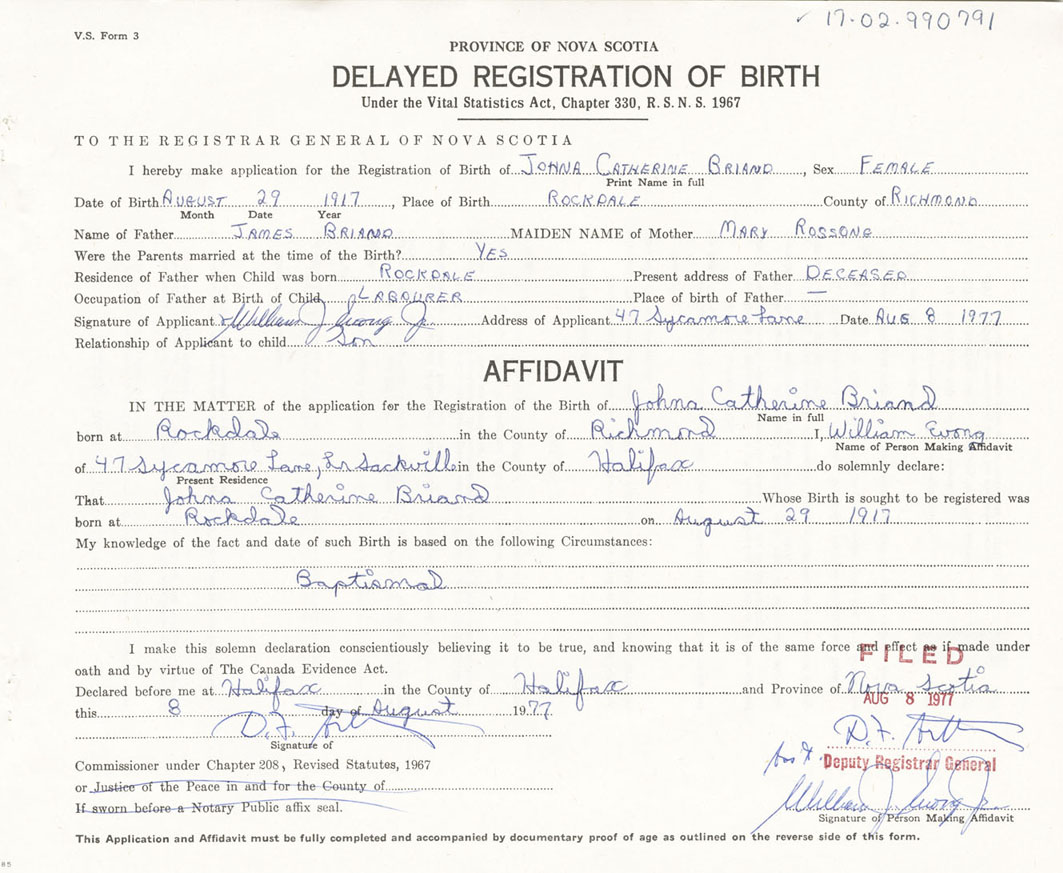 17-02-990791
V.S. Form 3
PROVINCE OF NOVA SCOTIA
DELAYED REGISTRATION OF BIRTH
Under the Vital Statistics Act, Chapter 330, R.S.N.S. 1967
TO THE REGISTRAR GENERAL OF NOVA SCOTIA
I hereby make application for the Registration of Birth of JOHNA CATHERINE BRIAND, Sex FEMALE
Print Name in full
Date of Birth AUGUST 29 1917, Place of Birth ROCKDALE County of RICHMOND
Month Date Year
Name of Father JAMES BRIAND MAIDEN NAME of Mother MARY ROSSONG
Were the Parents married at the time of the Birth? YES
Residence of Father when Child was born ROCKDALE Present address of Father DECEASED
Occupation of Father at Birth of Child LABOURER Place of birth of Father —
Signature of Applicant x William J. Ewong Jr. Address of Applicant 47 Sycamore Lane Date AUG 8 1977
Relationship of Applicant to child Son
AFFIDAVIT
IN THE MATTER of the application for the Registration of the Birth of Johna Catherine Briand
Name in full
born at Rockdale in the County of Richmond I, William Ewong
Name of Person Making Affidavit
of 47 Sycamore Lane, Lr Sackville in the County of Halifax do solemnly declare:
Present Residence
That Johna Catherine Briand Whose Birth is sought to be registered was
born at Rockdale on August 29 1917
My knowledge of the fact and date of such Birth is based on the following Circumstances:
Baptismal
I make this solemn declaration conscientiously believing it to be true, and knowing that it is of the same force and effect as if made under
FILED
oath and by virtue of The Canada Evidence Act.
Declared before me at Halifax in the County of Halifax and Province of Nova Scotia
AUG 8 1977
this 8 day of August 1977
D.F.
D.F.
Signature of
Commissioner under Chapter 208, Revised Statutes, 1967
Deputy Registrar General
or Justice of the Peace in and for the County of
William J. Ewong Jr.
If sworn before a Notary Public affix seal.
Signature of Person Making Affidavit
This Application and Affidavit must be fully completed and accompanied by documentary proof of age as outlined on the reverse side of this form.